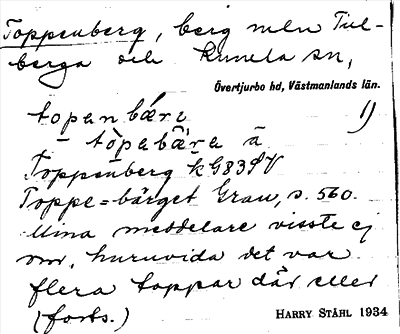 Toppenberg, berg mln Tul-
berga och Kumla sn,
Övertjurbo hd, Västmanlands län.
topanbäri 1)
- tòpabä̀ra ä
Toppenberg k G83SV
Toppe=bärget Grau, s. 560.
Mina meddelare visste ej
om, huruvida det var
flera toppar där eller
(forts.) HARRY STÅHL 1934